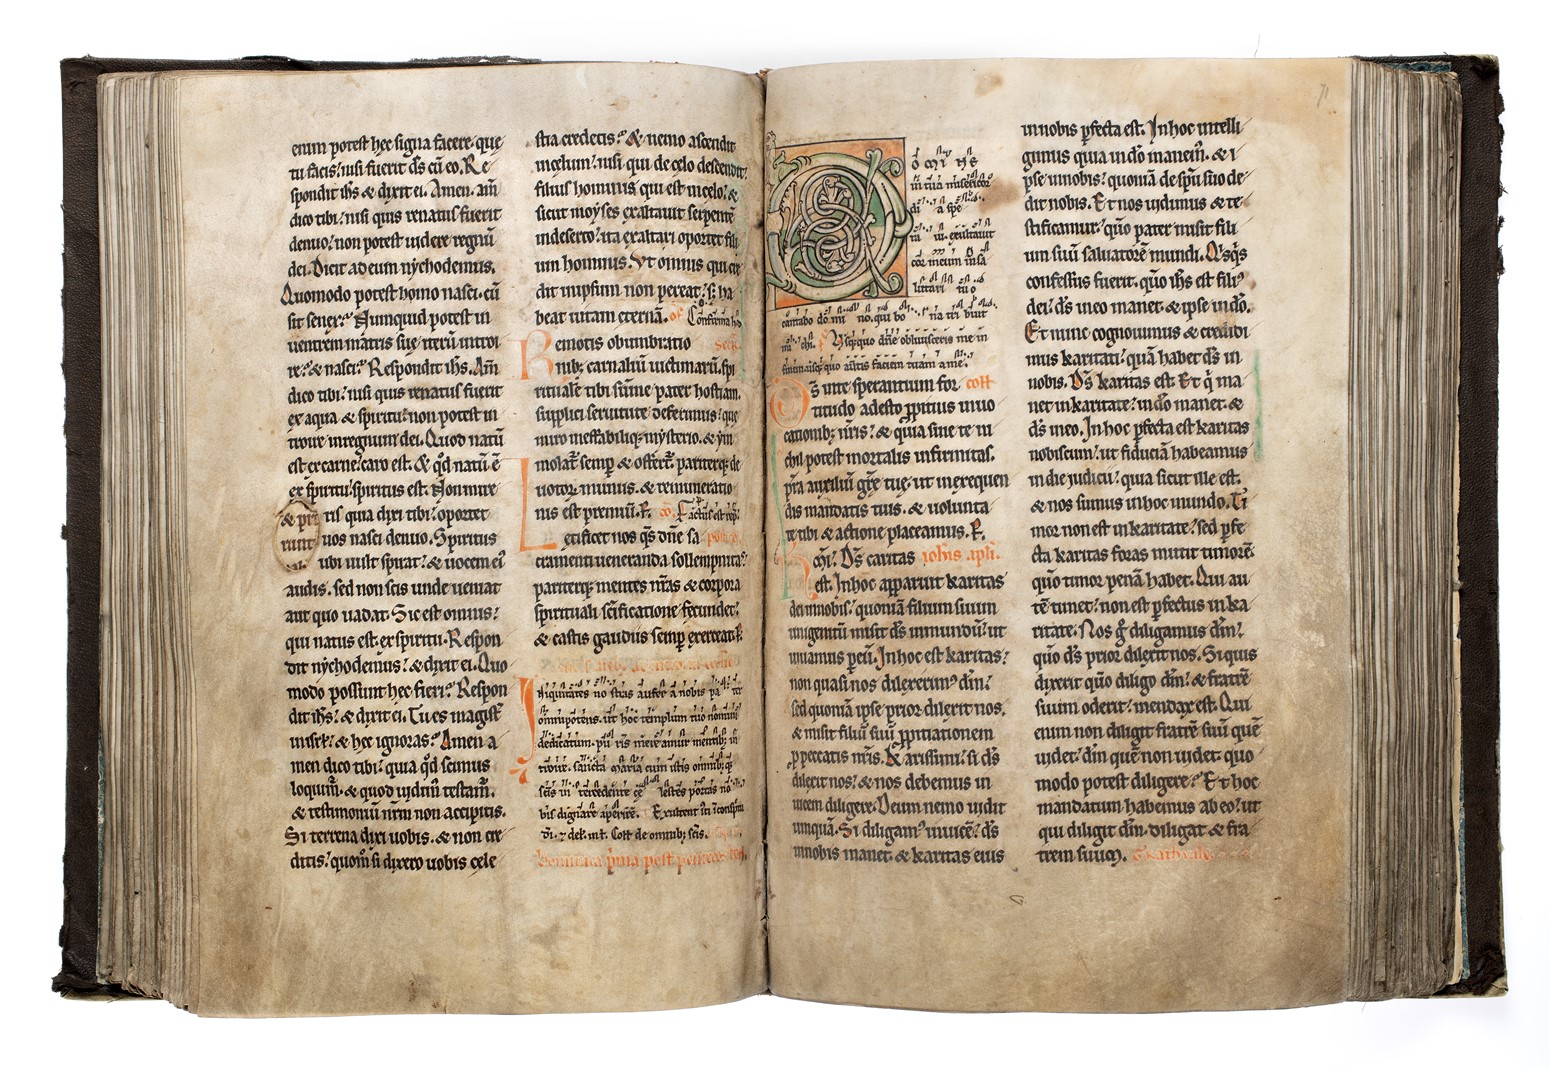 enim potest hec signa facere. que
tu facis? nisi fuerit ds cū eo. Re
spondit ihs & dixit ei. Amen. am̄
dico tibi? nisi quis renatus fuerit
denuo? non potest uidere regnū
dei. Dicit ad eum nychodemus.
Quomodo potest homo nasci. cū
sit senex? Nunquid potest in
uentrem matris suę iterū introi
re? & nasci? Respondit ihs. Am̄
dico tibi? nisi quis renatus fuerit
ex aqua & spiritu? non potest in
troire in regnum dei. Quod natū
est ex carne? caro est. & qd natū ē
ex spiritu? spiritus est. Non mire
tis quia dixi tibi? oportet
uos nasci denuo. Spiritus
ubi uult spirat? & uocem ei
audis. sed non scis unde ueniat
aut quo uadat. Sic est omnis?
qui natus est ex spiritu. Respon
dit nychodemus? & dixit ei. Quo
modo possunt hec fieri? Respon
dit ihs? & dixit ei. Tu es magist̄
in isrl? & hec ignoras? Amen a
men dico tibi? quia qd scimus
loquim̄. & quod uidim̄ testam̄.
& testimoniū nr̄m non accipitis.
Si terrena dixi uobis. & non cre
ditis? quom̄ si dixero uobis cele
stia credetis? & nemo ascendit
in celum? nisi qui de celo descendit?
filius hominis qui est in celo? &
sicut moyses exaltauit serpentē
in deserto? ita exaltari oportet fili
um hominis. Vt omnis qui cre
dit in ipsum non pereat? s; ha
beat uitam eternā. of Confirma h
Remotis obumbratio secr̄
nib; carnaliū uictimarū. spi
ritualē tibi sūme pater hostiam.
supplici seruitute deferimus? que
miro ineffabiliq; mysterio. & im
molat̄ semp & offert̄. pariterq; de
uotoȝ munus. & remuneratio
nis est premiū. P. co Factus est rep̄
Letificet nos qs dn̄e sa
cramenti ueneranda sollempnitas?
pariterq; mentes nr̄as & corpora
spirituali sc̄ificatione fecundet?
& castis gaudiis semp exerceat. P.
Iniquitates no stras aufer a nobis pa ter
omnipotens. ut hoc templum tuo nomini
dedicatum. pu ris mereamur mentib; in
troire. sancta maria cum istis omnib; q;
scis in tercedente ce lestes portas no
bis dignare aperire. Exultent
Coll de omnib; scīs.
Dominica prima post pentecosten.
Domine
in tua misericor
dia spe
raui. exultauit
cor meum in sa
lutari tuo
cantabo domino. qui bo na tri buit
mihi. Vsq;quo dn̄e obliuisceris me in
finem usq;quo auertis faciem tuam a me.
Ds in te sperantium for coll
titudo adesto ppitius inuo
cationib; nr̄is? & quia sine te ni
chil potest mortalis infirmitas.
pr̄a auxiliū grē tuę. ut in exequen
dis mandatis tuis. & uolunta
te tibi & actione placeamus. P.
Km̄i. Ds caritas iohis apli.
est. In hoc apparuit karitas
dei in nobis? quoniā filium suum
unigenitū misit ds in mundū? ut
uiuamus p eū. In hoc est karitas?
non quasi nos dilexerim⁹ dm̄?
sed quoniā ipse prior dilexit nos.
& misit filiū suū ppitiationem
p peccatis nr̄is. Karissimi? si ds
dilexit nos? & nos debemus in
uicem diligere. Deum nemo uidit
unquā. Si diligam⁹ inuicē? ds
in nobis manet. & karitas eius
in nobis pfecta est. In hoc intelli
gimus quia in do manem̄. & i
pse in nobis? quoniā de spū suo de
dit nobis. Et nos uidimus & te
stificamur? quō pater misit fili
um suū saluatorē mundi. Qsqs
confessus fuerit. quō ihs est fili⁹
dei? ds in eo manet & ipse in do.
Et nunc cognouimus & credidi
mus karitati? quā habet ds in
nobis. Ds karitas est. Et q ma
net in karitate? in do manet. &
ds in eo. In hoc pfecta est karitas
nobiscum? ut fiduciā habeamus
in die iudicii? quia sicut ille est.
& nos sumus in hoc mundo. Ti
mor non est in karitate? sed pfe
cta karitas foras mittit timorē
quō timor penā habet. Qui au
tē timet? non est pfectus in ka
ritate. Nos g diligamus dm̄?
quō ds prior dilexit nos. Si quis
dixerit quō diligo dm̄? & fratrē
suum oderit? mendax est. Qui
enim non diligit fratrē suū quē
uidet? dm̄ quē non uidet. quo
modo potest diligere? Et hoc
mandatum habemus ab eo? ut
qui diligit dm̄. diligat & fra
trem suum.